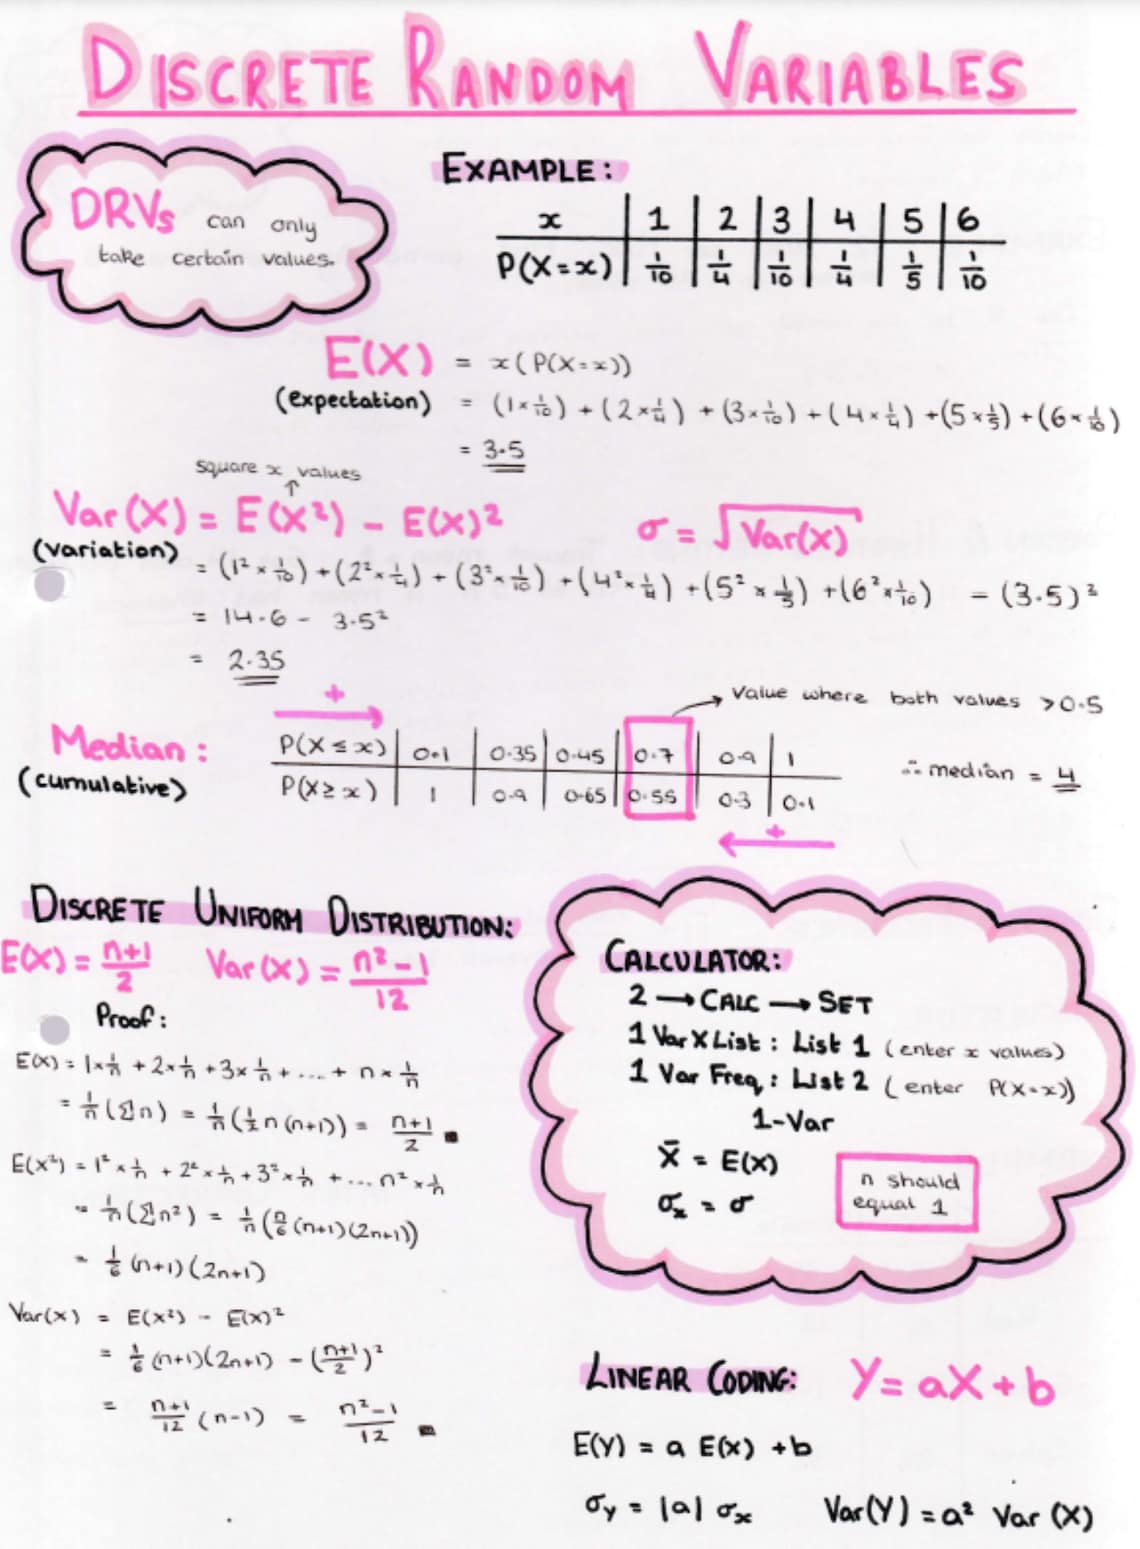 DISCRETE RANDOM VARIABLES
DRVs can only
take certain values.
EXAMPLE:
x | 1 | 2 | 3 | 4 | 5 | 6
P(X=x) | 1/10 | 1/4 | 1/10 | 1/4 | 1/5 | 1/10
E(X) = x(P(X=x))
(expectation) = (1×1/10) + (2×1/4) + (3×1/10) + (4×1/4) + (5×1/5) + (6×1/10)
= 3.5
square x values
↑
Var(X) = E(X²) - E(X)²
σ = √Var(X)
(variation)
= (1²×1/10) + (2²×1/4) + (3²×1/10) + (4²×1/4) + (5²×1/5) + (6²×1/10) = (3.5)²
= 14.6 - 3.5²
= 2.35
+
→ value where both values >0.5
Median:
(cumulative)
P(X≤x) | 0.1 | 0.35 | 0.45 | 0.7 | 0.9 | 1
P(X≥x) | 1 | 0.9 | 0.65 | 0.55 | 0.3 | 0.1
∴ median = 4
+
DISCRETE UNIFORM DISTRIBUTION:
E(X) = n+1/2 Var(X) = n²-1/12
Proof:
E(X) = 1×1/n + 2×1/n + 3×1/n + ... + n×1/n
= 1/n(Σn) = 1/n(1/2n(n+1)) = n+1/2 ■
E(X²) = 1²×1/n + 2²×1/n + 3²×1/n + ... n²×1/n
= 1/n(Σn²) = 1/n(n/6(n+1)(2n+1))
= 1/6(n+1)(2n+1)
Var(X) = E(X²) - E(X)²
= 1/6(n+1)(2n+1) - (n+1/2)²
= n+1/12(n-1) = n²-1/12 ■
CALCULATOR:
2 → CALC → SET
1 Var X List : List 1 (enter x values)
1 Var Freq : List 2 (enter P(X=x))
1-Var
x̄ = E(X)
σₓ = σ
n should
equal 1
LINEAR CODING: Y = aX + b
E(Y) = a E(X) + b
σy = |a| σx Var(Y) = a² Var(X)